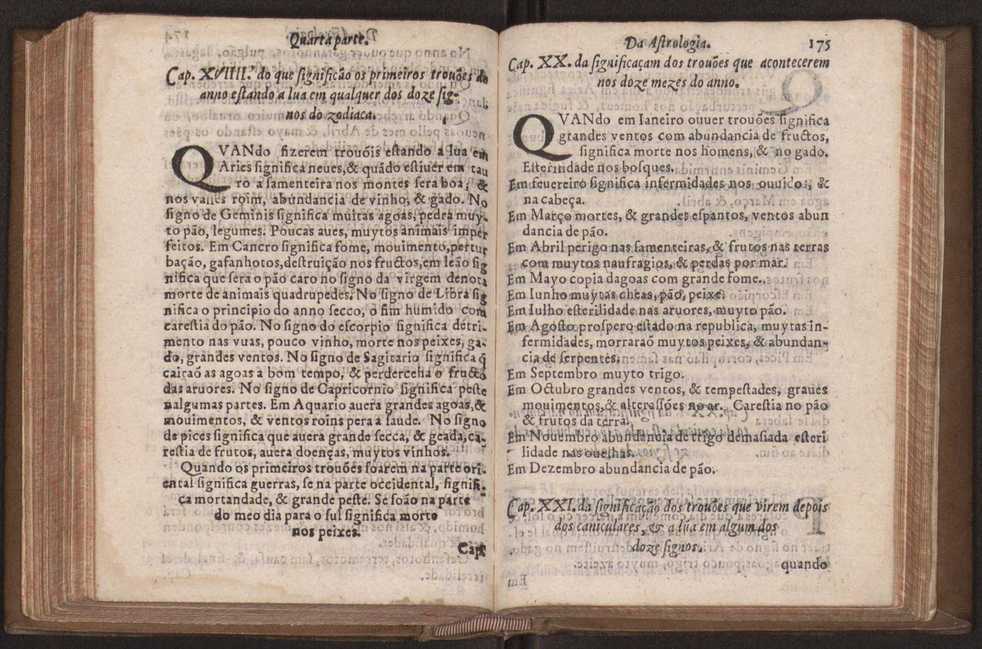 Quarta parte.
Cap. XVIIII. do que significão os primeiros trouões do
anno estando a lua em qualquer dos doze sig-
nos do zodiaca.
QVANdo fizerem trouõis estando a lua em
Aries significa neues, & quãdo estiuer em tau
ro a samenteira nos montes sera boa, &
nos valles roim, abundancia de vinho, & gado. No
signo de Geminis significa muitas agoas, pedra muy-
to pão, legumes. Poucas aues, muytos animais imper
feitos. Em Cancro significa fome, mouimento, pertur
bação, gafanhotos, destruição nos fructos, em leão sig
nifica que sera o pão caro no signo da virgem denota
morte de animais quadrupedes. No signo de Libra sig
nifica o principio do anno secco, o fim humido com
carestia do pão. No signo do escorpio significa detri-
mento nas vuas, pouco vinho, morte nos peixes, ga-
do, grandes ventos. No signo de Sagitario significa q̃
cairaõ as agoas a bom tempo, & perderceha o fructo
das aruores. No signo de Capricornio significa peste
nalgumas partes. Em Aquario auera grandes agoas, &
mouimentos, & ventos roins pera a saude. No signo
de pices significa que auera grande secca, & geada, ca-
restia de frutos, auera doenças, muytos vinhos.
Quando os primeiros trouões soarem na parte ori
ental significa guerras, se na parte occidental, signifi-
ca mortandade, & grande peste. Se soão na parte
do meo dia para o sul significa morte
nos peixes.
Cap.
Da Astrologia. 175
Cap. XX. da significaçam dos trouões que acontecerem
nos doze mezes do anno.
QVANdo em Ianeiro ouuer trouões significa
grandes ventos com abundancia de fructos,
significa morte nos homens, & no gado.
Esterilidade nos bosques.
Em feuereiro significa infermidades nos ouuidos, &
na cabeça.
Em Março mortes, & grandes espantos, ventos abun
dancia de pão.
Em Abril perigo nas samenteiras, & frutos nas terras
com muytos naufragios, & perdas por mar.
Em Mayo copia dagoas com grande fome.
Em Iunho muytas cheas, pão, peixe.
Em Iulho esterilidade nas aruores, muyto pão.
Em Agosto prospero estado na republica, muytas in-
fermidades, morraraõ muytos peixes, & abundan-
cia de serpentes.
Em Septembro muyto trigo.
Em Octubro grandes ventos, & tempestades, graues
mouimentos, & alterassões no ar. Carestia no pão
& frutos da terra.
Em Nouembro abundancia de trigo demasiada esteri
lidade nas ouelhas.
Em Dezembro abundancia de pão.
Cap. XXI. da significação dos trouões que virem depois
dos caniculares, & a lua em algum dos
doze signos.
quando